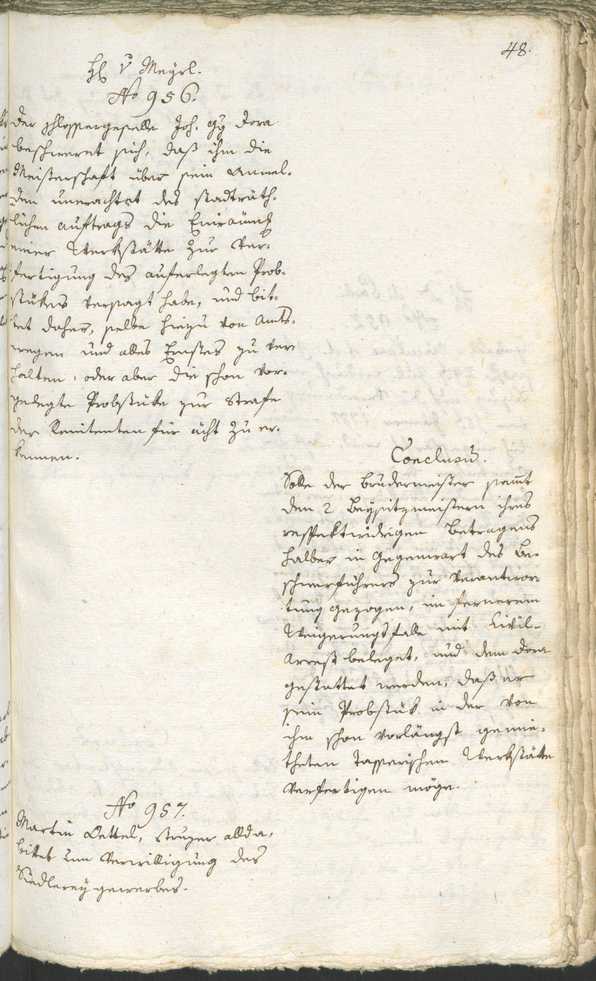 48.
H: v Mayrl.
No 956.
Der Schlossergeselle Joh. Gg Dora
beschweret sich, daß ihm die
Meisterschaft über sein Anmel-
den unerachtet des stadträth-
lichen Auftrags die Einräumg
einer Werkstätte zur Ver-
fertigung des auferlegten Prob-
stükes versagt habe, und bit-
tet daher, selbe hiezu von Amts-
wegen und alles Ernstes zu ver
halten, oder aber die schon vor-
gelegte Probstüke zur Strafe
der Renitenten für ächt zu er-
kennen.
Conclusum.
Solle der Brudermeister sammt
den 2 Beysitzmeistern ihres
respektwidrigen Betragens
halber in Gegenwart des Be-
schwerführers zur Verantwor-
tung gezogen, im fernerem
Weigerungsfalle mit Civil-
Arrest beleget, und dem Dora
gestattet werden, daß er
sein Probstük in der von
ihm schon vorlängst gemie-
theten Werkstätte
verfertigen möge.
No 957.
Martin Oettel, allda,
bittet um Verwilligung des
Siedlerey gewerbes.